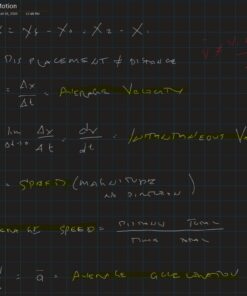 Motion
12:48 PM
= X₁ - X₀ = X₂ - X₁
DISPLACEMENT ≠ DISTANCE
= Δx/Δt = AVERAGE VELOCITY
lim Δt→0 Δx/Δt = dv/dt = INSTANTANEOUS V
= SPEED (MAGNITUDE
NO DIRECTION)
AVERAGE SPEED = DISTANCE TOTAL / TIME TOTAL
= a̅ = AVERAGE ACCELERATION